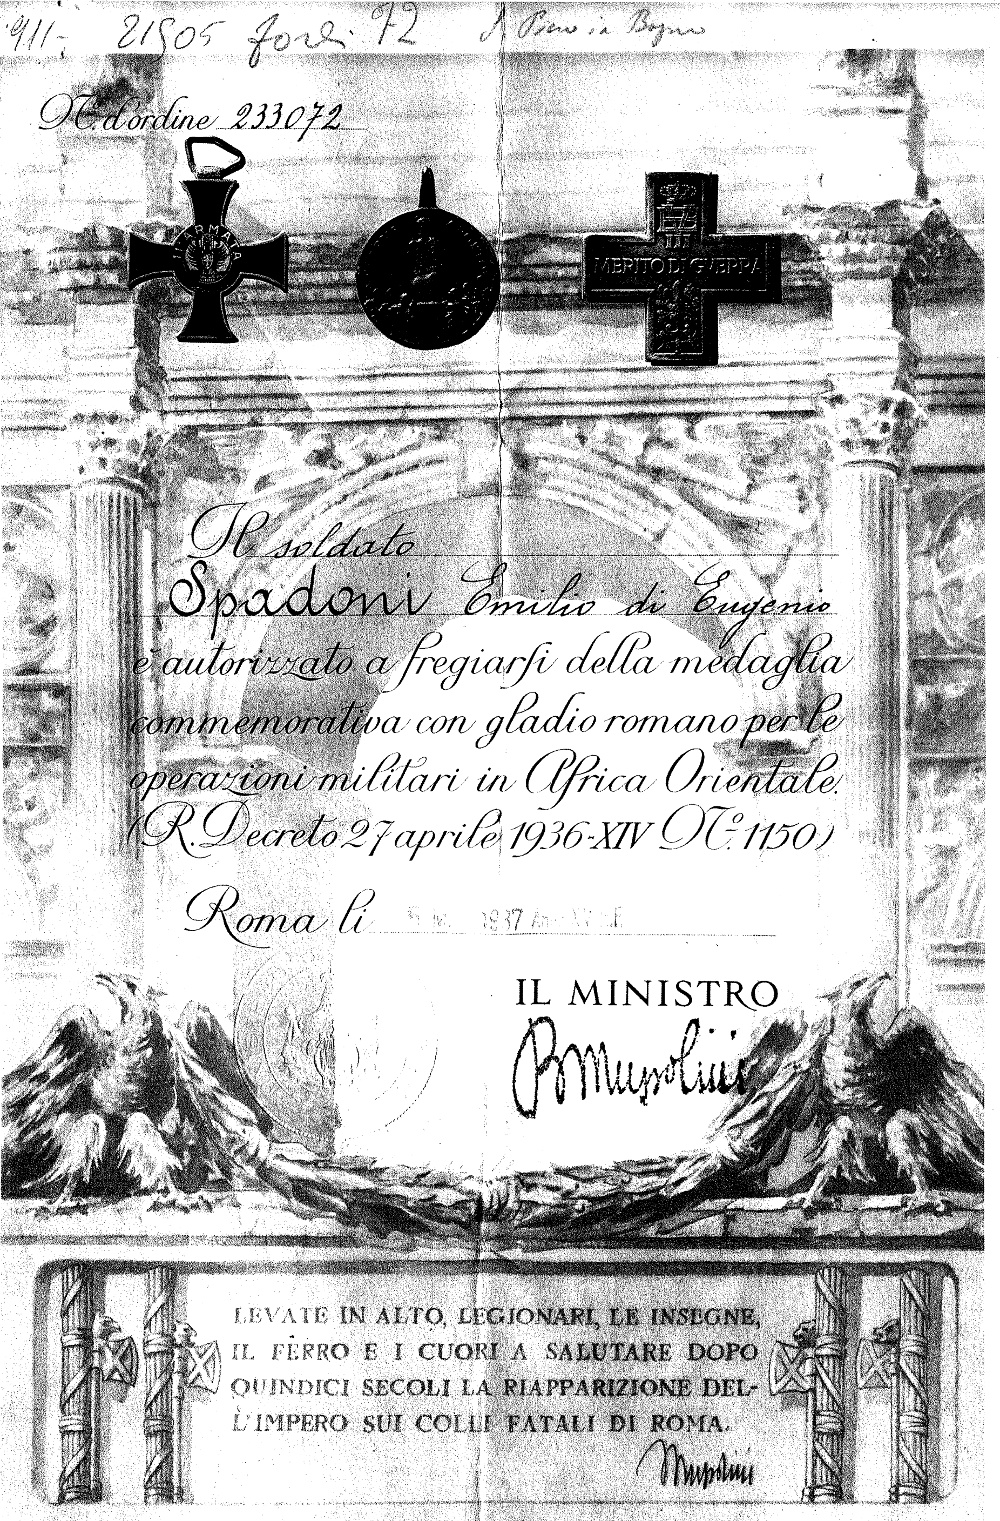 911-; 21505 forlì 72
N.° d'ordine 233072
IV ARMATA
MERITO DI GVERRA
Il soldato
Spadoni Emilio di Eugenio
è autorizzato a fregiarsi della medaglia
commemorativa con gladio romano per le
operazioni militari in Africa Orientale.
(R. Decreto 27 aprile 1936-XIV N.° 1150)
Roma li 1937
IL MINISTRO
B Mussolini
LEVATE IN ALTO, LEGIONARI, LE INSEGNE,
IL FERRO E I CUORI A SALUTARE DOPO
QUINDICI SECOLI LA RIAPPARIZIONE DEL-
L'IMPERO SUI COLLI FATALI DI ROMA.
Mussolini